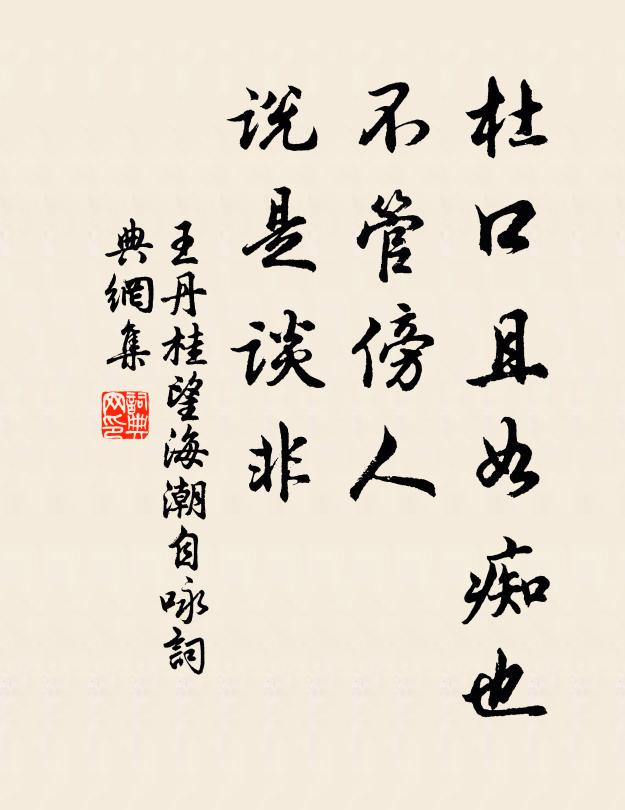 杜口且如痴也
不管傍人
说是谈非
王丹桂望海潮自咏詞
典網集
詞典网印